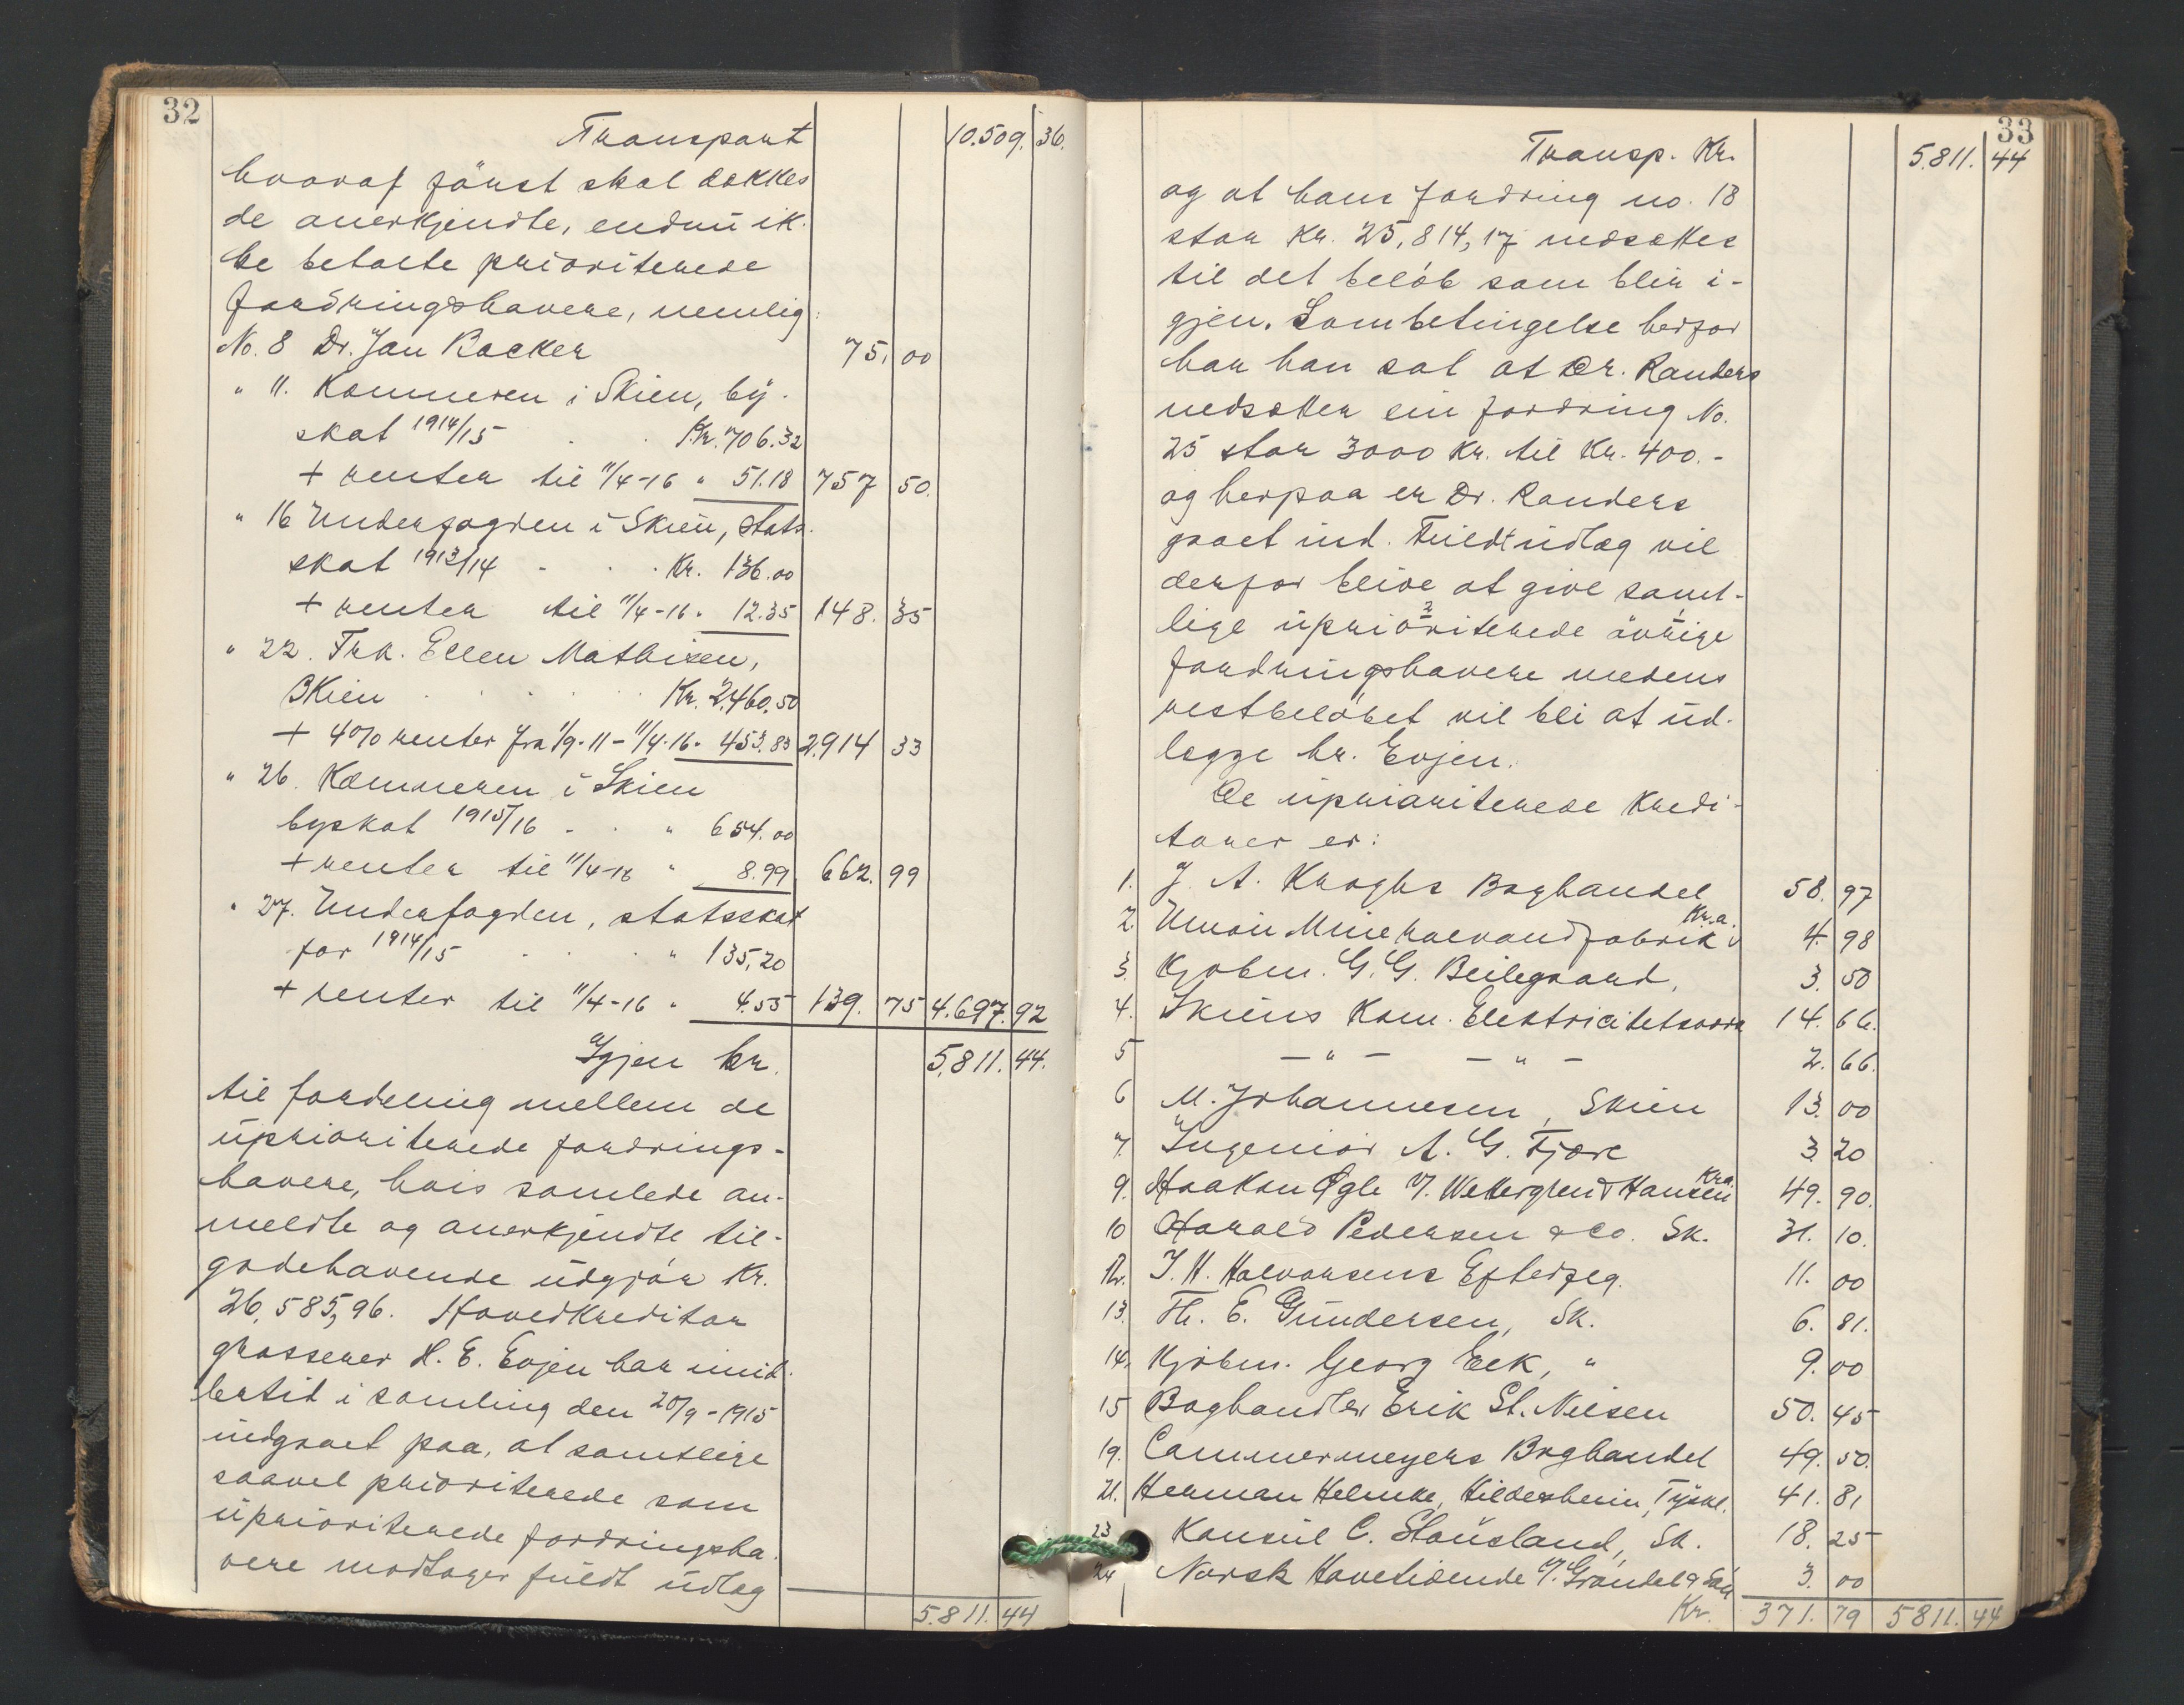 32
Transport 10.509. 36.
hvoraf först skal dækkes
de anerkjendte, endnu ik-
ke betalte prioriterede
fordringshavere, nemlig:
No. 8 Dr. Jan Backer 75. 00
" 11. Kæmneren i Skien, by-
skat 1914/15 . . Kr. 706.32
+ renter til 11/4-16 " 51.18 757 50.
" 16 Underfogden i Skien, stats-
skat 1913/14 - . . Kr. 136.00
+ renter til 11/4-16 " 12.35 148. 35
" 22. Frk. Ellen Mathisen,
Skien . . . . . Kr. 2.460.50
+ 4% renter fra 1/9-11 - 11/4-16 " 453.83 2914 33
" 26. Kæmneren i Skien
byskat 1915/16 . . " 654.00
+ renter til 11/4-16 " 8.99 662. 99
" 27. Underfogden, statsskat
for 1914/15 . . . " 135,20
+ renter til 11/4-16 " 4.55 139. 75 4.697. 92
Igjen kr. 5.811. 44.
til fordeling mellem de
uprioriterede fordrings-
havere, hvis samlede an-
meldte og anerkjendte til-
godehavende udgjör Kr.
26,585,96. Hovedkreditor
grosserer H. E. Evjen har imid-
lertid i samling den 20/9-1915
indgaaet paa, at samtlige
saavel prioriterede som
uprioriterede fordringsha-
vere modtager fuldt udlæg
5.811. 44
33
Transp. Kr. 5.811. 44
og at hans fordring no. 18
stor Kr. 25,814,17 nedsættes
til det belöb som blir i-
gjen. Som betingelse herfor
har han sat at Dr. Randers
nedsætter sin fordring No.
25 stor 3000 Kr. til Kr. 400.-
og herpaa er Dr. Randers
gaaet ind. Fuldt udlæg vil
derfor blive at give samt-
lige uprioriterede övrige
fordringshavere medens
restbelöbet vil bli at ud-
lægge hr. Evjen.
De uprioriterede Kredi-
torer er:
1. J. A. Kroghs Boghandel 58. 97
2. Union Mineralvandfabrik Kr.a. 4. 98
3. Kjøbm. G. G. Beilegaard, 3. 50
4. Skiens Kom. Elektricitetsverk 14. 66.
5 - " - - " - 2. 66.
6 M. Johannesen, Skien 13. 00
7. Ingeniör A. G. Fjære 3. 20
9. Haakon Ogle v/. Wettergrend Hansen Kra. 49. 90.
10 Harald Pedersen & Co. Sk. 31. 10.
12. I. H. Halvorsens Efterfølg. 11. 00
13. Th. E. Gundersen, Sk. 6. 81.
14. Kjøbm. Georg Eek, " 9. 00
15 Boghandler Erik St. Nilsen 50. 45
19. Cammermeyers Boghandel 49. 50.
21. Herman Helmke, Hildesheim, Tyskl. 41. 81
23 Konsul C. Stousland, Sk. 18. 25
24 Norsk Havetidende v/. Gröndal & Sön 3. 00
Kr. 371. 79 5811. 44